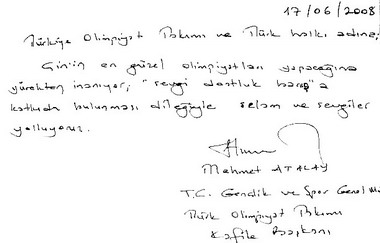 17/06/2008
Türkiye Olimpiyat Takımı ve Türk halkı adına;
Çin'in en güzel olimpiyatları yapacağına
yürekten inanıyor; "sevgi dostluk barış"a
katkıda bulunması dileğiyle selam ve sevgiler
yolluyoruz.
Mehmet ATALAY
T.C. Gençlik ve Spor Genel M
Türk Olimpiyat Takımı
Kafile Başkanı